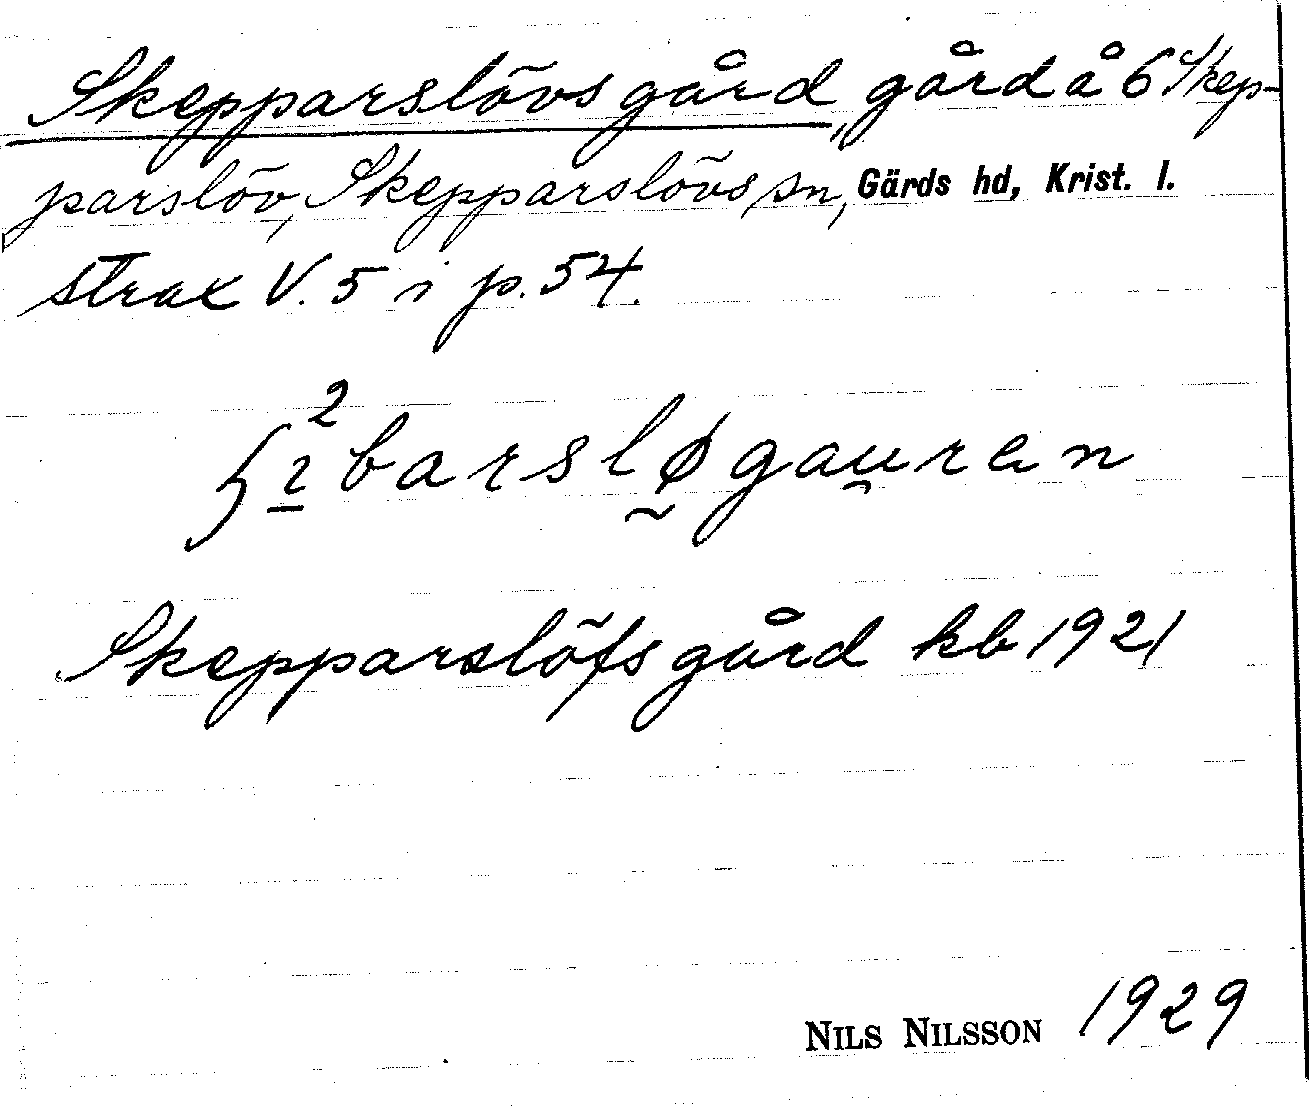 Skepparslövsgård, gård å 6 Skep-
parslöv, Skepparslövs sn, Gärds hd, Krist. l.
strax V. 5 i p. 54.
Skepparslöfsgård kb 1921
NILS NILSSON 1929